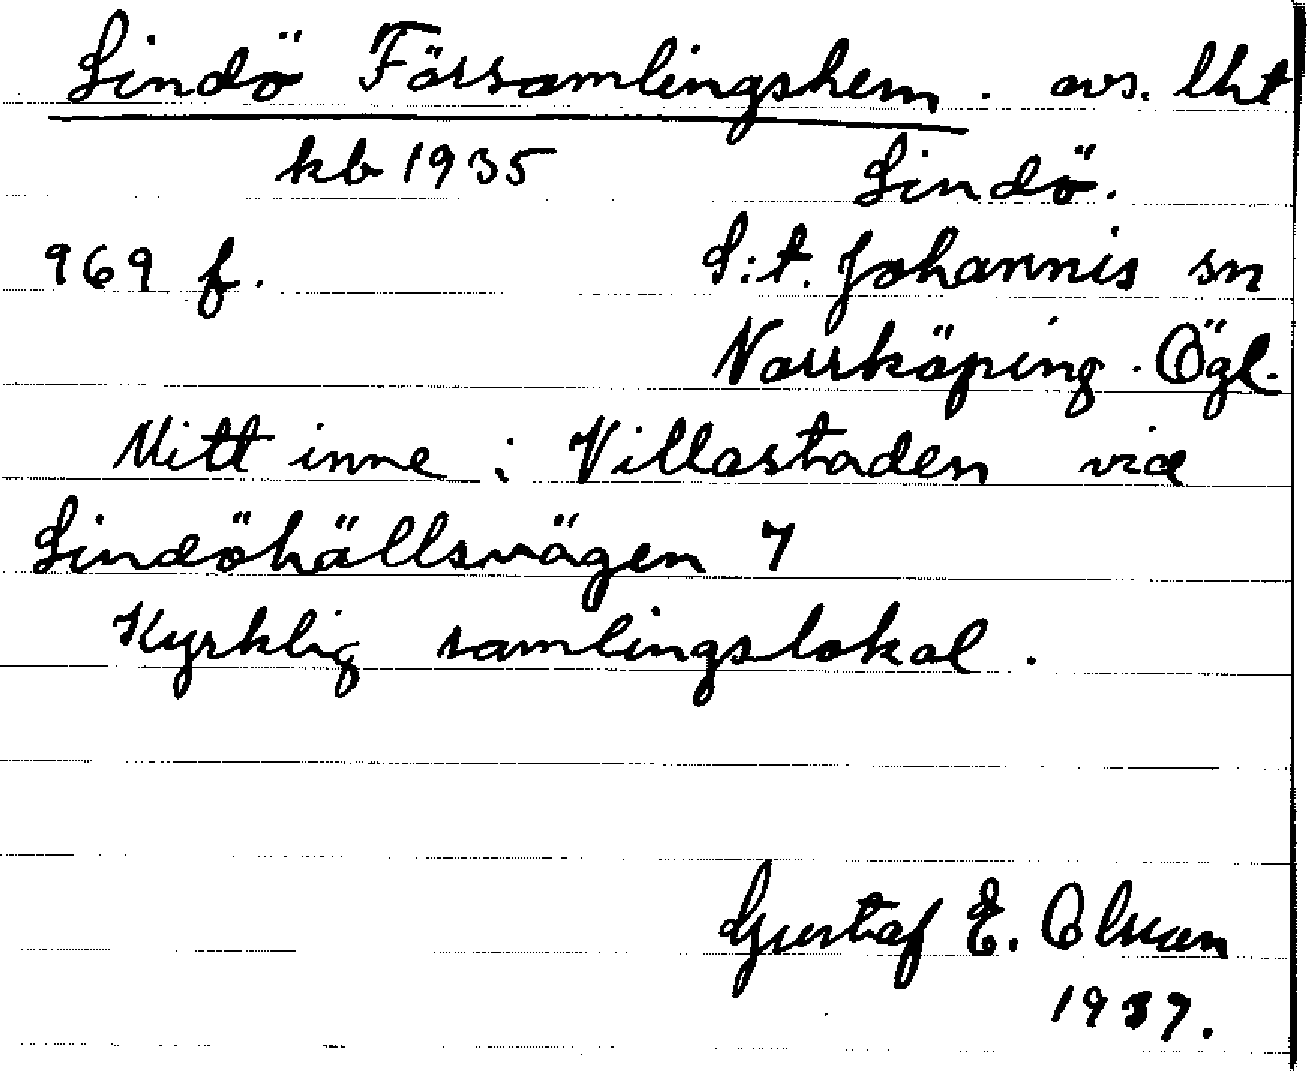 Lindö Församlingshem . avs. lht
kb 1935
Lindö.
969 f.
S:t. Johannis sn
Norrköping. Ögl.
Mitt inne i Villastaden vid
Lindöhällsvägen 7
Kyrklig samlingslokal.
Gustaf E. Olson
1937.